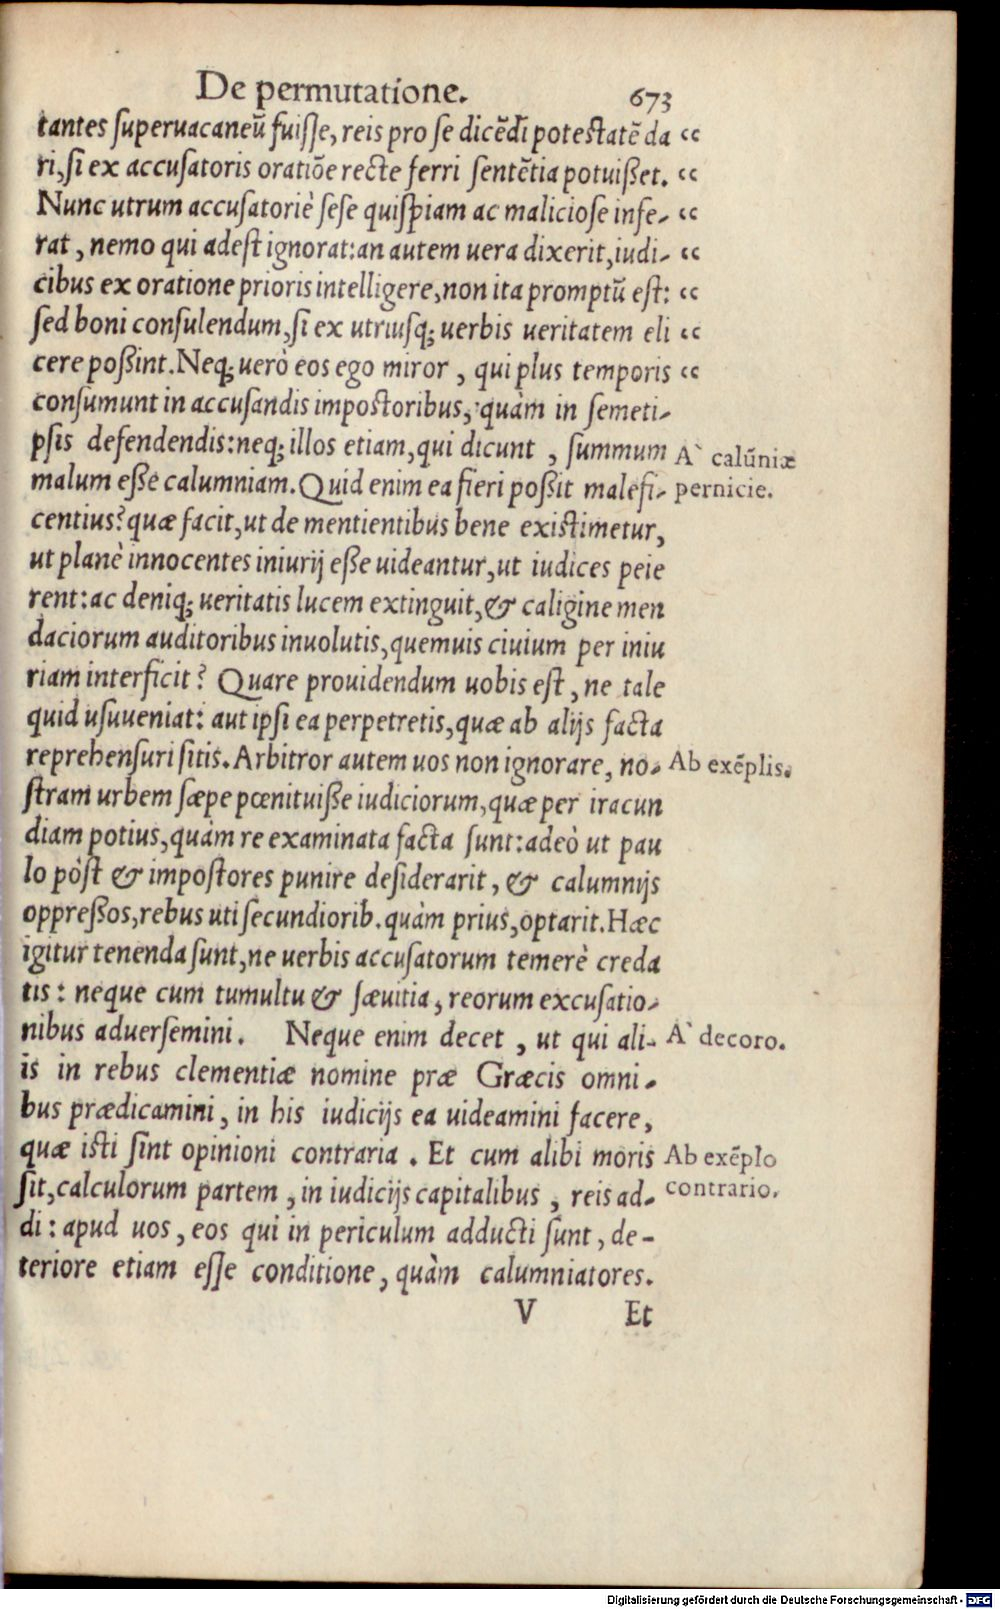 De permutatione. 673
tantes superuacaneũ fuisse, reis pro se dicẽdi potestatẽ da “
ri, si ex accusatoris oratiõe recte ferri sentẽtia potuißet. “
Nunc utrum accusatoriè sese quispiam ac maliciose infe- “
rat, nemo qui adest ignorat: an autem uera dixerit, iudi- “
cibus ex oratione prioris intelligere, non ita promptũ est: “
sed boni consulendum, si ex utriusq; uerbis ueritatem eli “
cere poßint. Neq; uerò eos ego miror, qui plus temporis “
consumunt in accusandis impostoribus, quàm in semeti-
psis defendendis: neq; illos etiam, qui dicunt, summum
À calũniæ
malum eße calumniam. Quid enim ea fieri poßit malefi-
pernicie.
centius? quæ facit, ut de mentientibus bene existimetur,
ut planè innocentes iniurij eße uideantur, ut iudices peie
rent: ac deniq; ueritatis lucem extinguit, & caligine men
daciorum auditoribus inuolutis, quemuis ciuium per iniu
riam interficit? Quare prouidendum uobis est, ne tale
quid usuueniat: aut ipsi ea perpetretis, quæ ab alijs facta
reprehensuri sitis. Arbitror autem uos non ignorare, no-
Ab exẽplis.
stram urbem sæpe pœnituiße iudiciorum, quæ per iracun
diam potius, quàm re examinata facta sunt: adeò ut pau
lo pòst & impostores punire desiderarit, & calumnijs
oppreßos, rebus uti secundiorib. quàm prius, optarit. Hæc
igitur tenenda sunt, ne uerbis accusatorum temerè creda
tis: neque cum tumultu & sæuitia, reorum excusatio-
nibus aduersemini. Neque enim decet, ut qui ali-
À decoro.
is in rebus clementiæ nomine præ Græcis omni-
bus prædicamini, in his iudicijs ea uideamini facere,
quæ isti sint opinioni contraria. Et cum alibi moris
Ab exẽplo
sit, calculorum partem, in iudicijs capitalibus, reis ad-
contrario.
di: apud uos, eos qui in periculum adducti sunt, de-
teriore etiam esse conditione, quàm calumniatores.
V Et
Digitalisierung gefördert durch die Deutsche Forschungsgemeinschaft - DFG